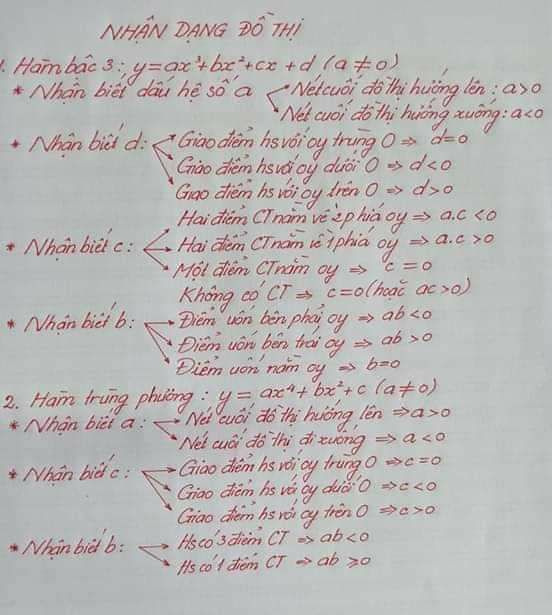 NHẬN DẠNG ĐỒ THỊ
1. Hàm bậc 3: y=ax³+bx²+cx+d (a≠0)
* Nhận biết dấu hệ số a → Nét cuối đồ thị hướng lên: a>0
→ Nét cuối đồ thị hướng xuống: a<0
* Nhận biết d: → Giao điểm hs với oy trùng O ⇒ d=0
→ Giao điểm hs với oy dưới O ⇒ d<0
→ Giao điểm hs với oy trên O ⇒ d>0
Hai điểm CT nằm về 2 phía oy ⇒ a.c<0
* Nhận biết c: → Hai điểm CT nằm về 1 phía oy ⇒ a.c>0
→ Một điểm CT nằm oy ⇒ c=0
Không có CT ⇒ c=0 (hoặc ac>0)
* Nhận biết b: → Điểm uốn bên phải oy ⇒ ab<0
→ Điểm uốn bên trái oy ⇒ ab>0
→ Điểm uốn nằm oy ⇒ b=0
2. Hàm trùng phương: y=ax⁴+bx²+c (a≠0)
* Nhận biết a: → Nét cuối đồ thị hướng lên ⇒ a>0
→ Nét cuối đồ thị đi xuống ⇒ a<0
* Nhận biết c: → Giao điểm hs với oy trùng O ⇒ c=0
→ Giao điểm hs với oy dưới O ⇒ c<0
→ Giao điểm hs với oy trên O ⇒ c>0
* Nhận biết b: → Hs có 3 điểm CT ⇒ ab<0
→ Hs có 1 điểm CT ⇒ ab≥0